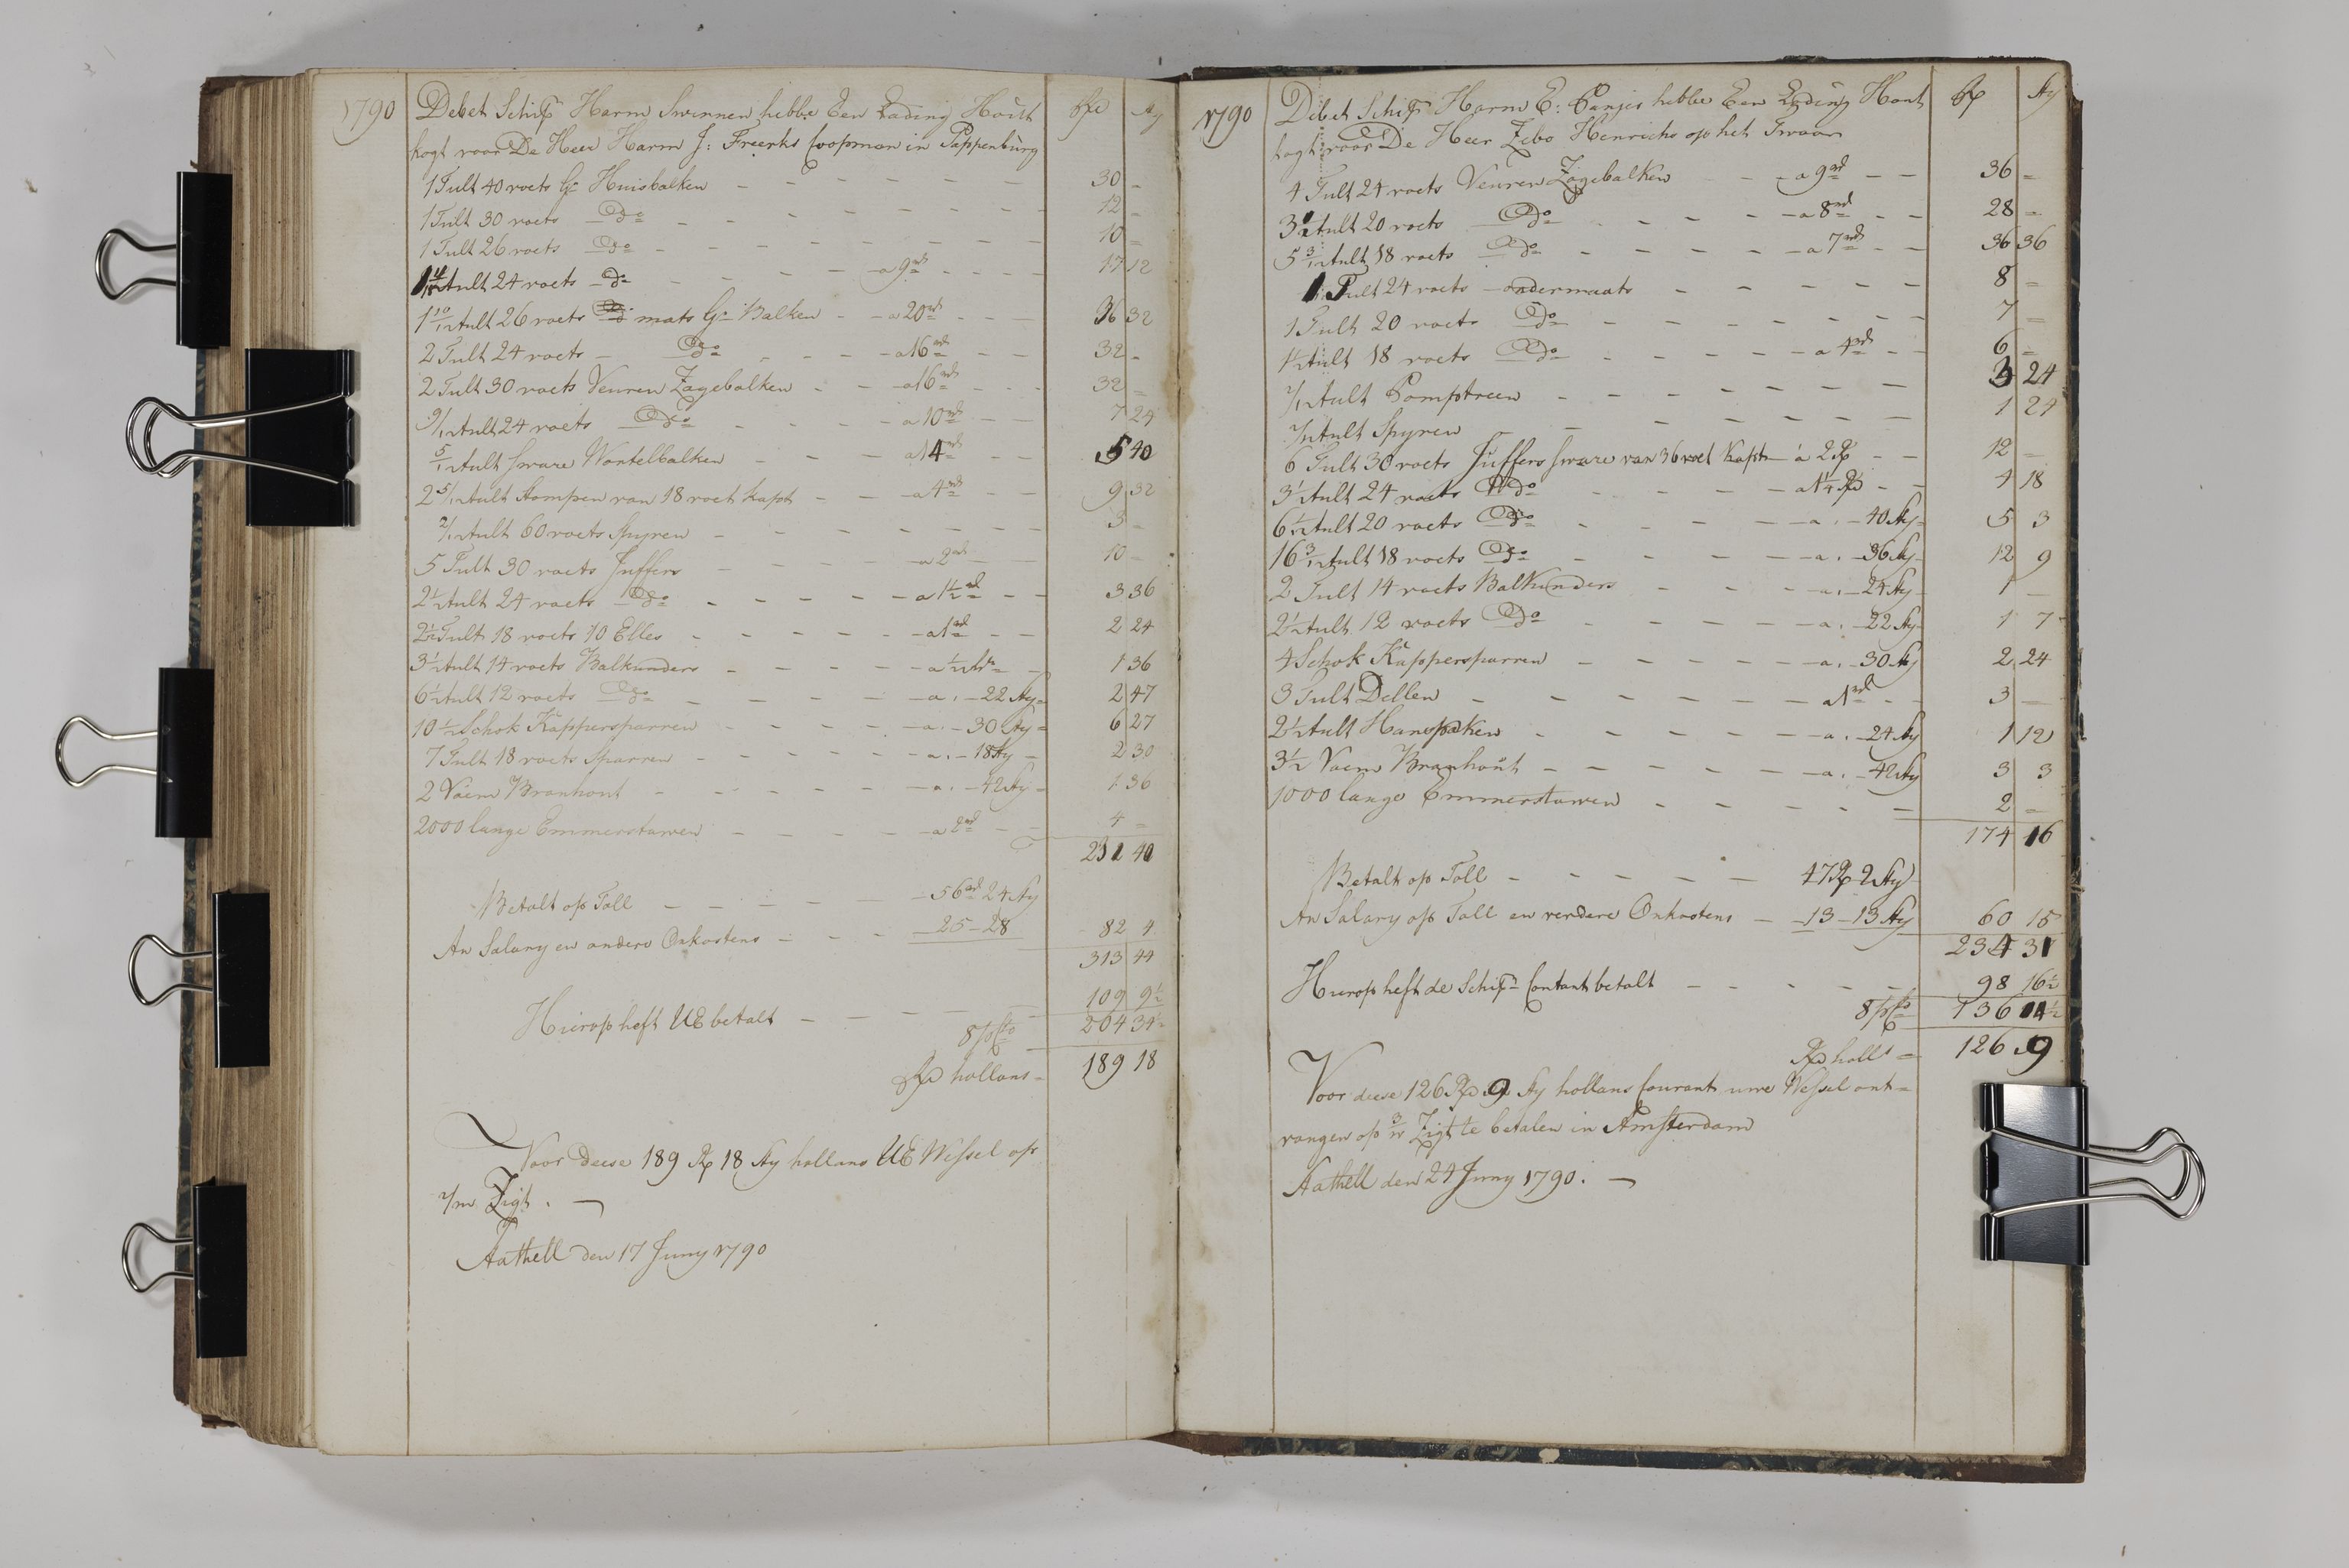 1790 Debet Schipr Harm Swinnen hebbe Een Lading Hout Rd Sty
kogt voor De Heer Harm J: Freerks Coopman in Pappenburg
1 Tult 40 voets Gr Huisbalken 30 -
1 Tult 30 voets Do 12 -
1 Tult 26 voets Do 10 -
Tult 24 voets Do a 9 rd 17 12
1 10/12 Tult 26 voets mats Gr Balken a 20 rd 36 32
2 Tult 24 voets Do a 16 rd 32 -
2 Tult 30 voets Veuren Zagebalken a 16 rd 32 -
9/12 Tult 24 voets Do a 10 rd 7 24
5/12 Tult sware Wortelbalken a 14 rd 5 40
2 5/12 Tult Stompen van 18 voet kapt a 4 rd 9 32
2/12 Tult 60 voets Spyren 3 -
5 Tult 30 voets Juffers a 2 rd 10 -
2 1/2 Tult 24 voets Do a 1 1/2 rd 3 36
2 1/2 Tult 18 voets 10 Elles a 1 rd 2 24
3 1/2 Tult 14 voets Balkunders a 1/2 1 36
6 1/2 Tult 12 voets Do a - 22 Sty 2 47
10 1/2 Schok Kappersparren a - 30 Sty 6 27
7 Tult 18 voets Sparren a - 18 Sty 2 30
2 Vaem Branhout a - 42 Sty 1 36
2000 lange Emmerstawen a 2 rd 4 -
231 40
Betalt op Toll 56 rd 24 Sty
An Salary en andere Onkostens 25 - 28 82 4
313 44
Hierop heft UE betalt 109 9 1/2
8 pCto 204 34 1/2
Rd hollans 189 18
Voor deese 189 Rd 18 Sty hollans UE Wessel op
2/m Zigt. —
Aathell den 17 Juny 1790
1790 Debet Schipr Harm E: Panjes hebbe Een Lading Hout Rd Sty
kogt voor De Heer Zebo Henrichs op het
4 Tult 24 voets Veuren Zagebalken a 9 rd 36 -
3 1/2 Tult 20 voets Do a 8 rd 28 -
5 3/12 Tult 18 voets Do a 7 rd 36 36
1 Tult 24 voets ondermaats 8 -
1 Tult 20 voets Do 7 -
1 1/2 Tult 18 voets Do a 4 rd 6 -
Tult Pompstreen 3 24
Tult Spyren 1 24
6 Tult 30 voets Juffers sware van 36 voet kapt a 2 Rd 12 -
3 1/2 Tult 24 voets Do a 1 1/4 Rd 4 18
6 1/2 Tult 20 voets Do a - 40 Sty 5 3
16 3/12 Tult 18 voets Do a - 36 Sty 12 9
2 Tult 14 voets Balkunders a - 24 Sty 1 -
2 1/2 Tult 12 voets Do a - 22 Sty 1 7
4 Schok Kappersparren a - 30 Sty 2 24
3 Tult Dellen a 1 rd 3 -
2 1/2 Tult Hanspaken a - 24 Sty 1 12
3 1/2 Vaem Branhout a - 42 Sty 3 3
1000 lange Emmerstawen 2 -
174 16
Betalt op Toll 47 Rd 2 Sty
An Salary op Toll en verdere Onkostens 13 - 13 Sty 60 15
234 31
Hierop heft de Schipr Contant betalt 98 16 1/2
8 pCto 136 14 1/2
Rd holls 126 9
Voor deese 126 Rd 9 Sty hollans Courant uwe Wessel ont=
vangen op Zigt te betalen in Amsterdam
Aathell den 24 Juny 1790. —